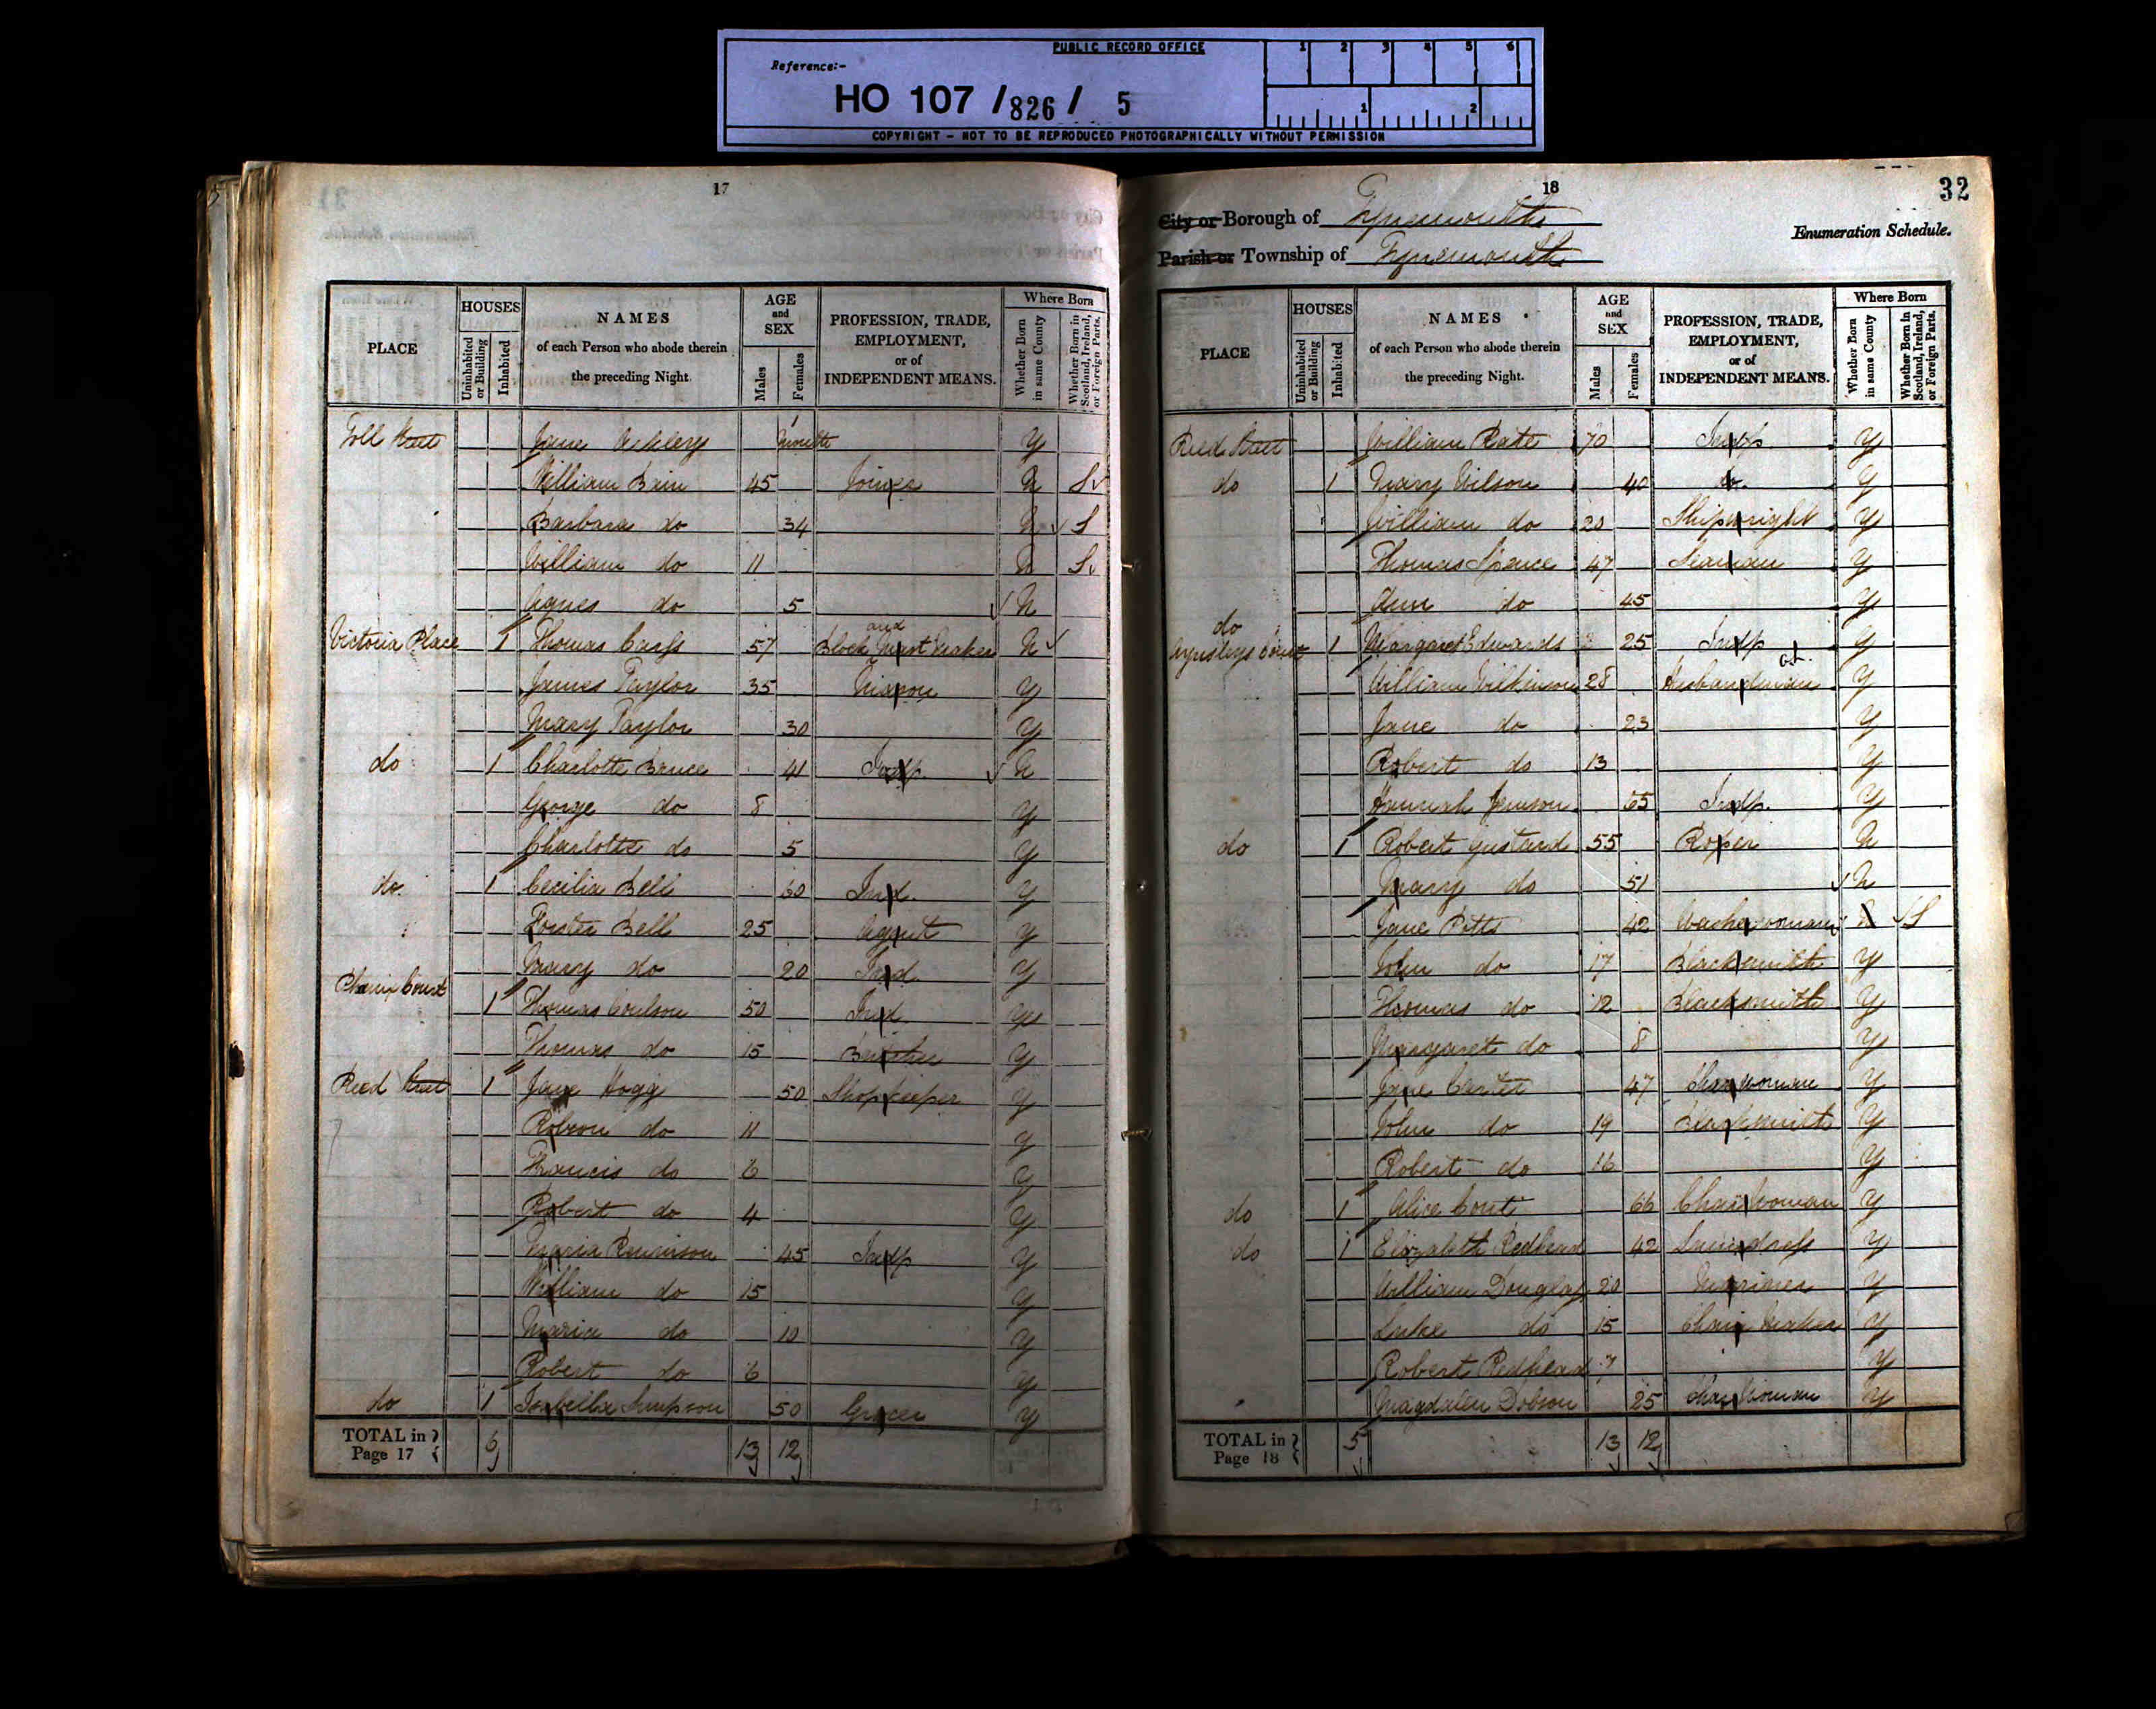 PUBLIC RECORD OFFICE
Reference:-
HO 107 / 826 / 5
1 2 3 4 5 6
1 2
COPYRIGHT - NOT TO BE REPRODUCED PHOTOGRAPHICALLY WITHOUT PERMISSION
17
PLACE HOUSES Uninhabited or Building Inhabited NAMES of each Person who abode therein the preceding Night. AGE and SEX Males Females PROFESSION, TRADE, EMPLOYMENT, or of INDEPENDENT MEANS. Where Born Whether Born in same County Whether Born in Scotland, Ireland, or Foreign Parts.
Toll Street Jane 1 Month Y
William Bain 45 Joiner N S
Barbara do 34 N S
William do 11 N S
Agnes do 5 N
Victoria Place 1 Thomas Carss 57 Block and Mast Maker N
James Taylor 35 Mason Y
Mary Taylor 30 Y
do 1 Charlotte Bruce 41 Indp N
George do 8 Y
Charlotte do 5 Y
do 1 Cecilia Bell 60 Ind. Y
Forster Bell 25 Agent Y
Mary do 20 Ind Y
Court 1 Thomas Coulson 50 Ind Yes
Thomas do 15 Butcher Y
Reed Street 1 Jane Hogg 50 Shopkeeper Y
Robson do 11 Y
Francis do 6 Y
Robert do 4 Y
Maria Rennison 45 Indp Y
William do 15 Y
Maria do 10 Y
Robert do 6 Y
do 1 Isabella Simpson 50 Grocer Y
TOTAL in Page 17 6 13 12
18
32
City or Borough of Tynemouth
Enumeration Schedule.
Parish or Township of Tynemouth
PLACE HOUSES Uninhabited or Building Inhabited NAMES of each Person who abode therein the preceding Night. AGE and SEX Males Females PROFESSION, TRADE, EMPLOYMENT, or of INDEPENDENT MEANS. Where Born Whether Born in same County Whether Born in Scotland, Ireland, or Foreign Parts.
Reed Street William Rate 70 Indp Y
do 1 Mary Wilson 40 do. Y
William do 20 Shipwright Y
Thomas Spence 47 Seaman Y
Ann do 45 Y
do Court 1 Margaret Edwards 25 Indp Y
William Wilkinson 28 Husbandman Y
Jane do 23 Y
Robert do 13 Y
Hannah Jemson 65 Indp. Y
do 1 Robert Gustard 55 Roper N
Mary do 51 N
Jane Potts 42 Washerwoman N S
John do 17 Blacksmith Y
Thomas do 12 Blacksmith Y
Margaret do 8 Y
Jane Carter 47 Charwoman Y
John do 19 Blacksmith Y
Robert do 16 Y
do 1 Alice Cout 66 Charwoman Y
do 1 Elizabeth Redhead 42 Laundress Y
William Douglas 20 Mariner Y
Luke do 15 Chain Maker Y
Robert Redhead 7 Y
Magdalen Dobson 25 Charwoman Y
TOTAL in Page 18 5 13 12